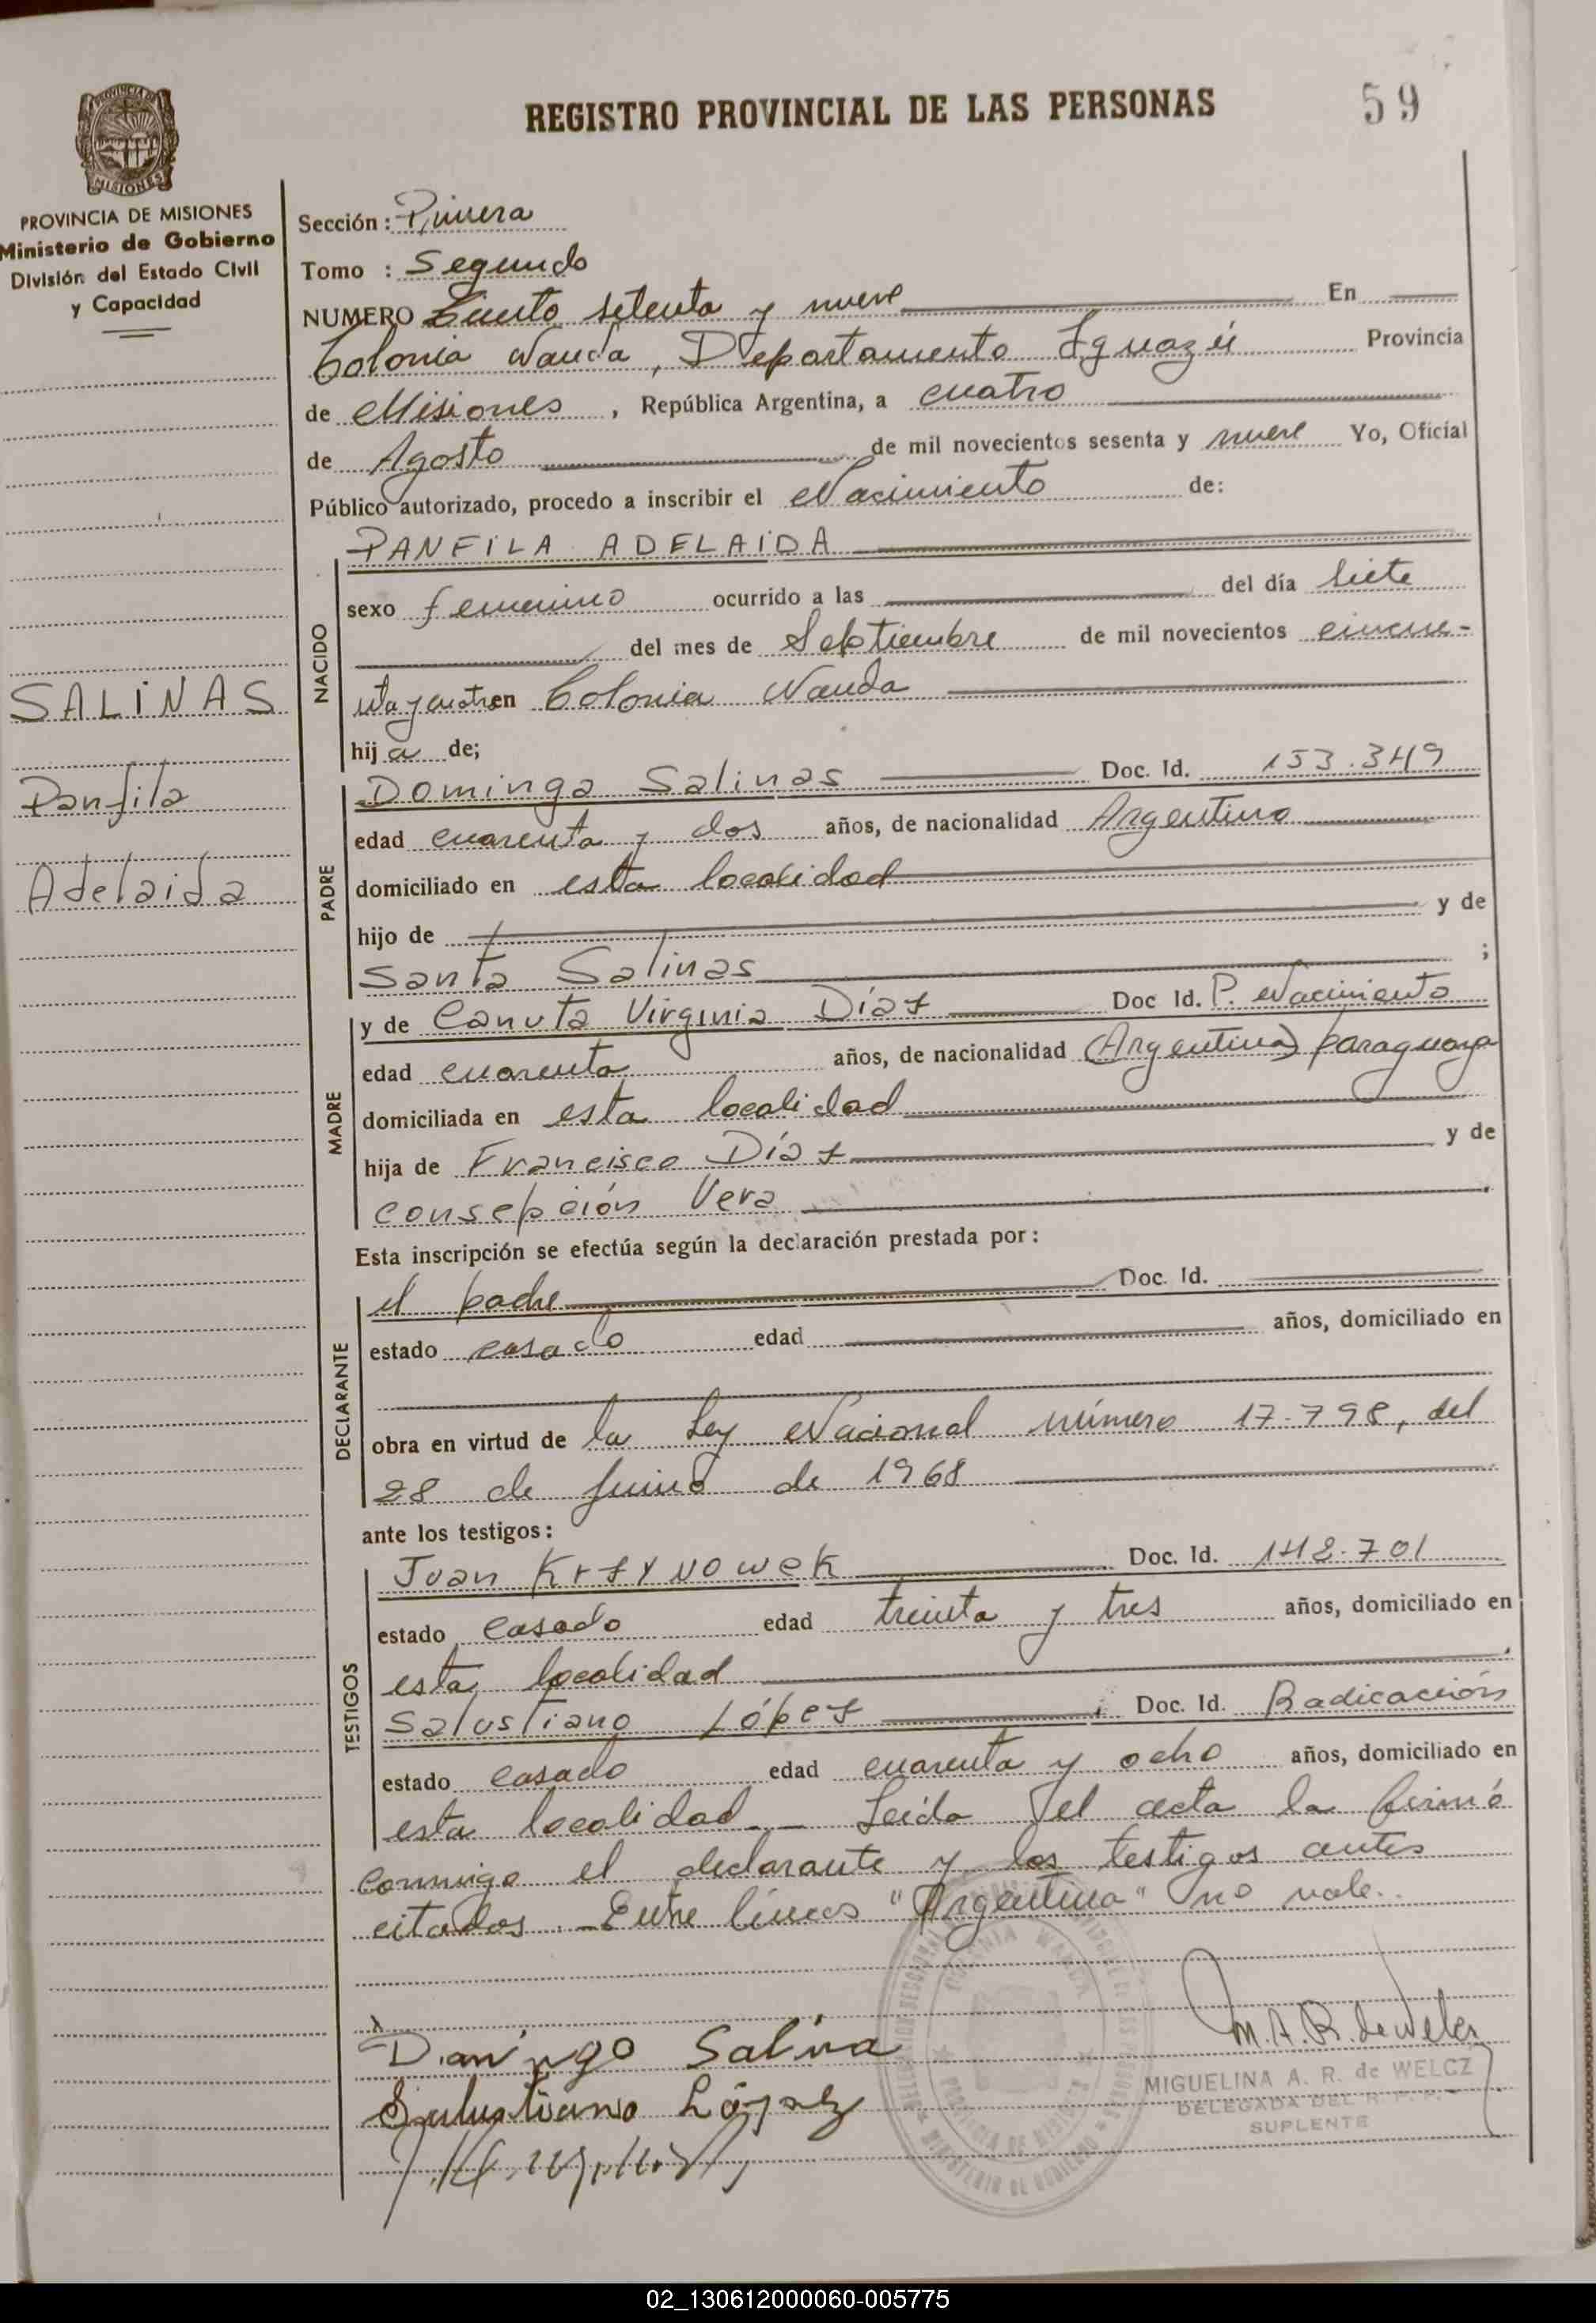 REGISTRO PROVINCIAL DE LAS PERSONAS
59
MISIONES
PROVINCIA DE MISIONES
Ministerio de Gobierno
División del Estado Civil
y Capacidad
SALINAS
Panfila
Adelaida
Sección: Primera
Tomo : Segundo
NUMERO Ciento setenta y nueve En
Colonia Wanda, Departamento Iguazú Provincia
de Misiones, República Argentina, a cuatro
de Agosto de mil novecientos sesenta y nueve Yo, Oficial
Público autorizado, procedo a inscribir el Nacimiento de:
NACIDO
PANFILA ADELAIDA
sexo femenino ocurrido a las del día siete
del mes de Septiembre de mil novecientos cincue-
nta y cuatro en Colonia Wanda
hija de;
PADRE
Domingo Salinas Doc. Id. 153.349
edad cuarenta y dos años, de nacionalidad Argentino
domiciliado en esta localidad
hijo de y de
Santa Salinas ;
MADRE
y de Canuta Virginia Díaz Doc Id. P. Nacimiento
edad cuarenta años, de nacionalidad (Argentina) paraguaya
domiciliada en esta localidad
hija de Francisco Díaz y de
Consepción Vera
Esta inscripción se efectúa según la declaración prestada por:
DECLARANTE
el padre Doc. Id.
estado casado edad años, domiciliado en
obra en virtud de la Ley Nacional número 17.798, del
28 de Junio de 1968
ante los testigos:
TESTIGOS
Juan Krzynowek Doc. Id. 142.701
estado casado edad treinta y tres años, domiciliado en
esta localidad
Salustiano López ; Doc. Id. Radicación
estado casado edad cuarenta y ocho años, domiciliado en
esta localidad. Leída el acta la firmó
conmigo el declarante y los testigos antes
citados. Entre líneas "Argentina" no vale.
Domingo Salina
Salustiano López
M.A.R. de Welcz
MIGUELINA A. R. de WELCZ
DELEGADA DEL R. P. P.
SUPLENTE
COLONIA WANDA
PROVINCIA DE MISIONES
MINISTERIO DE GOBIERNO
02_130612000060-005775